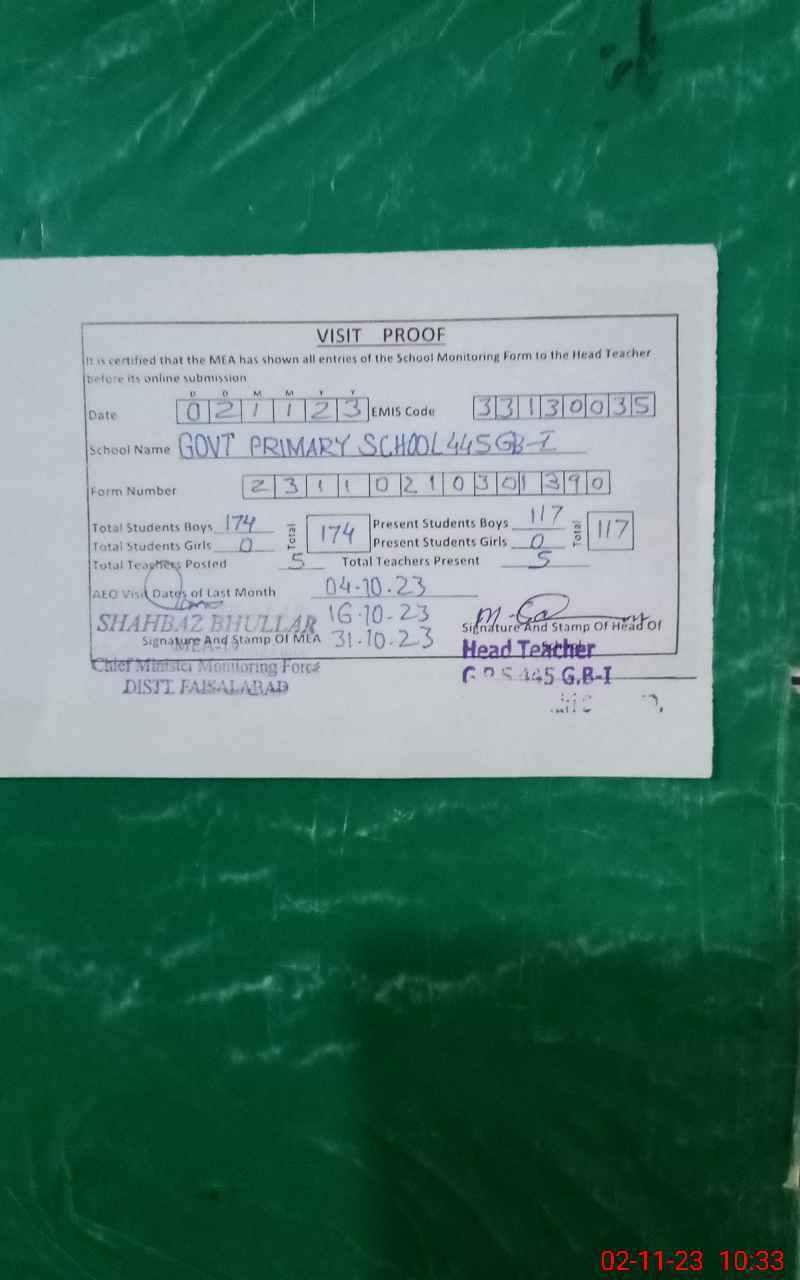 VISIT PROOF
It is certified that the MEA has shown all entries of the School Monitoring Form to the Head Teacher
before its online submission
D D M M Y Y
Date 0 2 1 1 2 3 EMIS Code 3 3 1 3 0 0 3 5
School Name GOVT PRIMARY SCHOOL 445 GB-I
Form Number 2 3 1 1 0 2 1 0 3 0 1 3 9 0
Total Students Boys 174 Total 174 Present Students Boys 117 Total 117
Total Students Girls 0 Present Students Girls 0
Total Teachers Posted 5 Total Teachers Present 5
AEO Visit Dates of Last Month 04-10-23
SHAHBAZ BHULLAR 16-10-23
Signature And Stamp Of MEA 31-10-23 Signature And Stamp Of Head Of
Head Teacher
Chief Minister Monitoring Force 445 G.B-I
DISTT. FAISALABAD
02-11-23 10:33